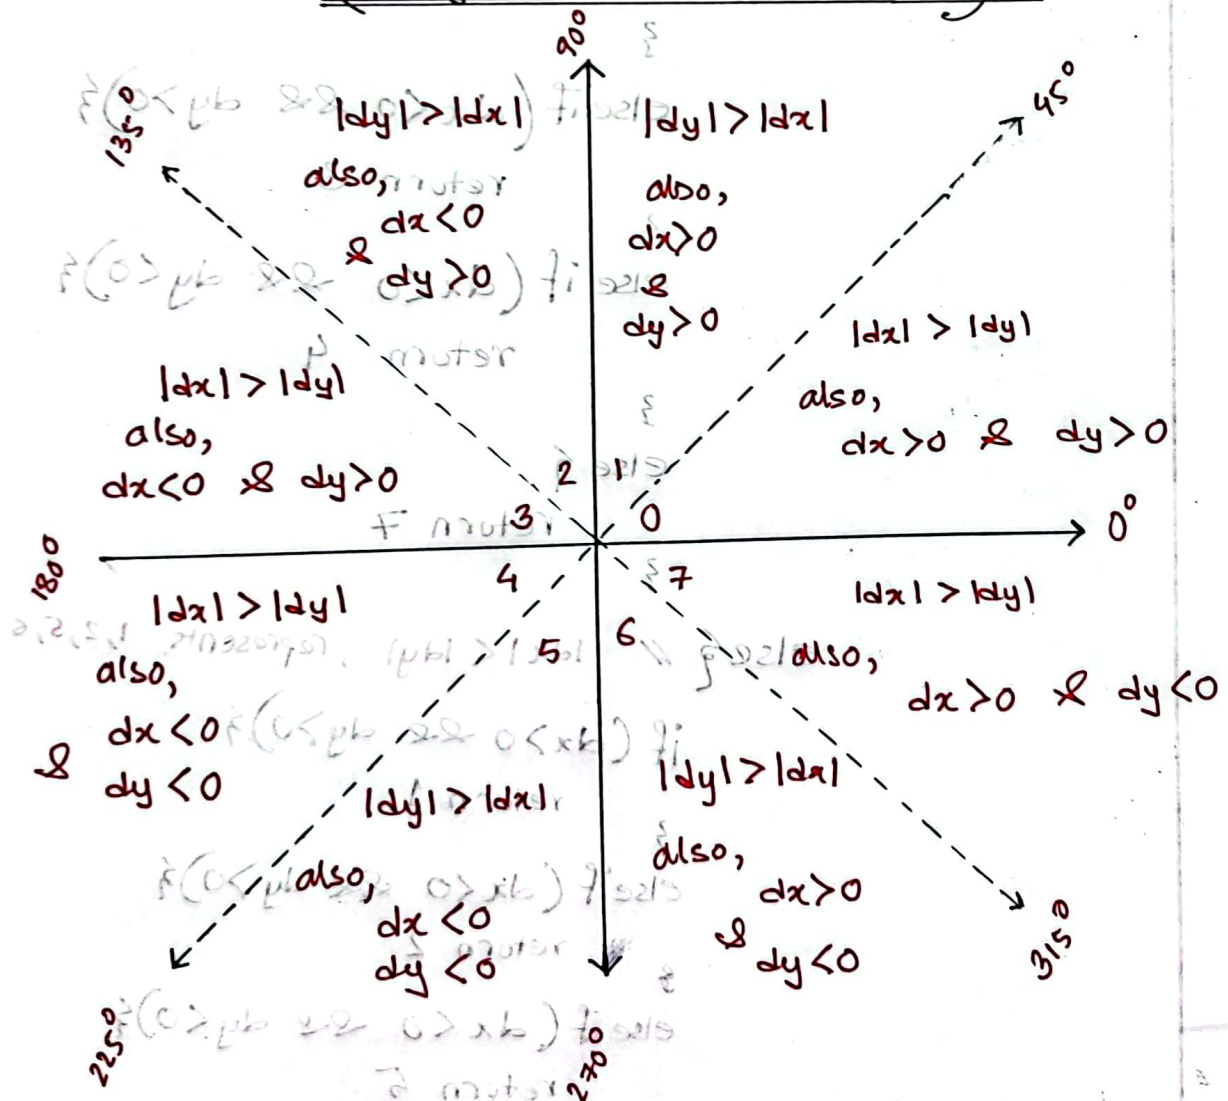 90°
45°
135°
|dy| > |dx|
also,
dx < 0
&
dy > 0
|dy| > |dx|
also,
dx > 0
&
dy > 0
|dx| > |dy|
also,
dx > 0 & dy > 0
|dx| > |dy|
also,
dx < 0 & dy > 0
2 1
3 0
0°
180°
4 7
5 6
|dx| > |dy|
also,
dx < 0
&
dy < 0
|dx| > |dy|
also,
dx > 0 & dy < 0
|dy| > |dx|
also,
dx < 0
dy < 0
|dy| > |dx|
also,
dx > 0
&
dy < 0
225°
270°
315°